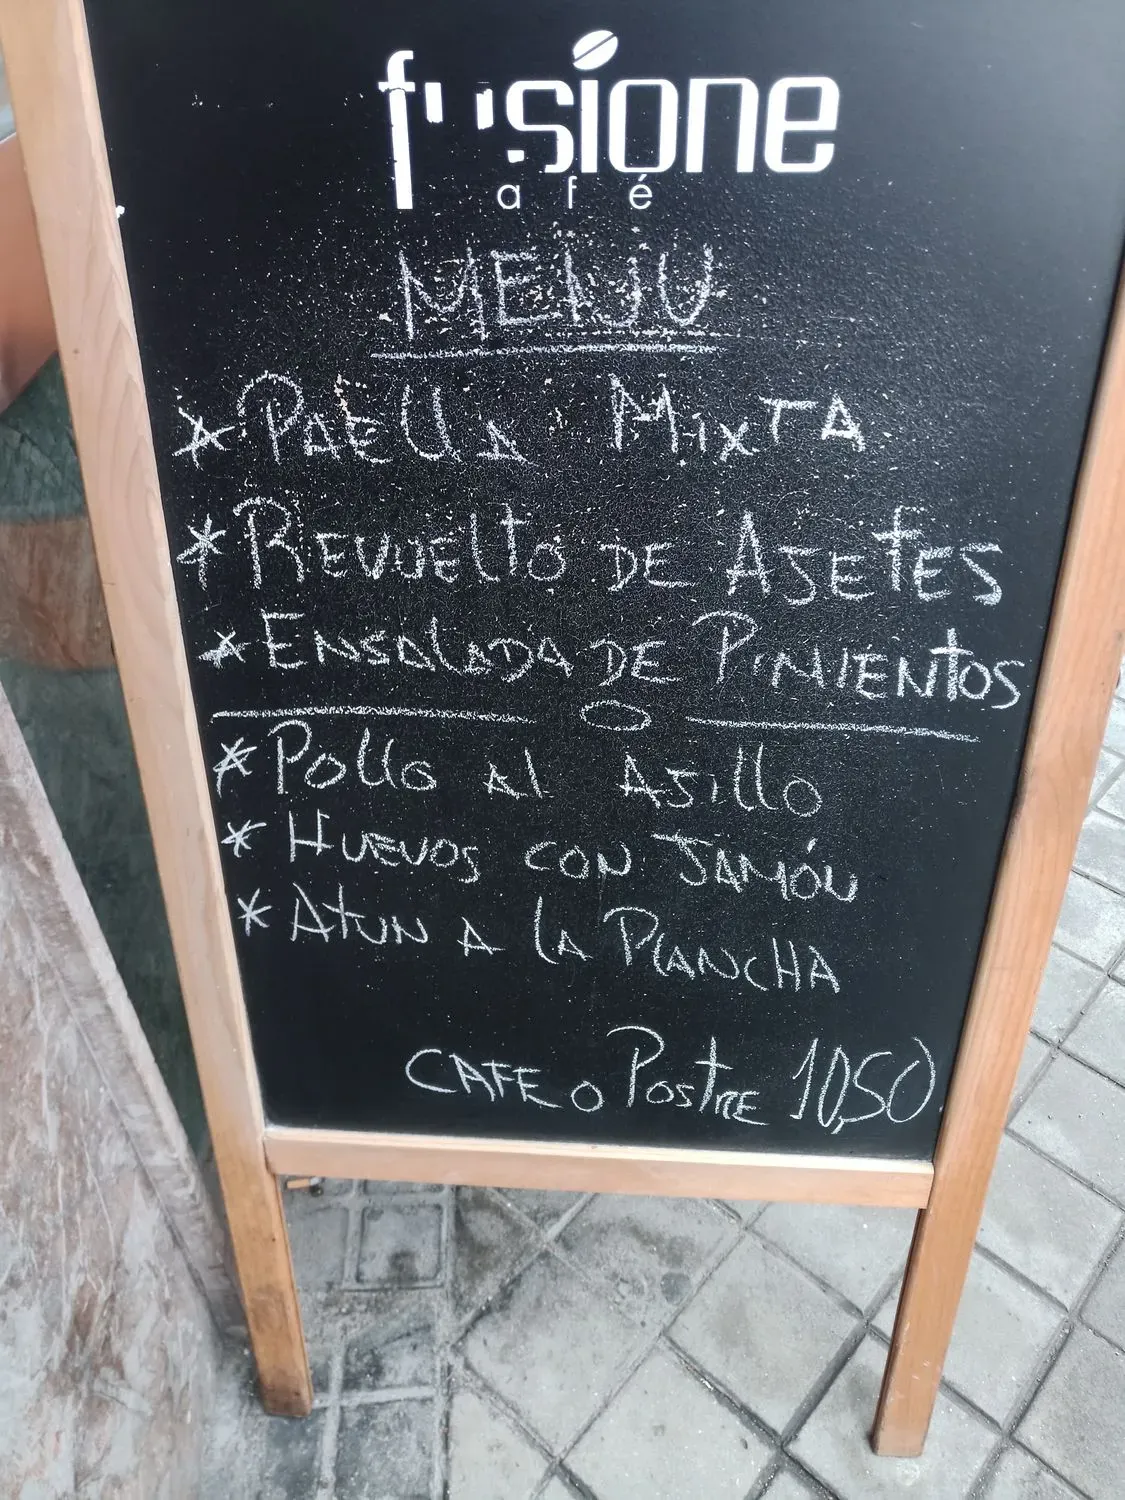 fusione
afé
MENU
* PAELLA MIXTA
* REVUELTO DE AJETES
* ENSALADA DE PIMIENTOS
O
* POLLO AL AJILLO
* HUEVOS CON JAMÓN
* ATUN A LA PLANCHA
CAFE O POSTRE 10,50